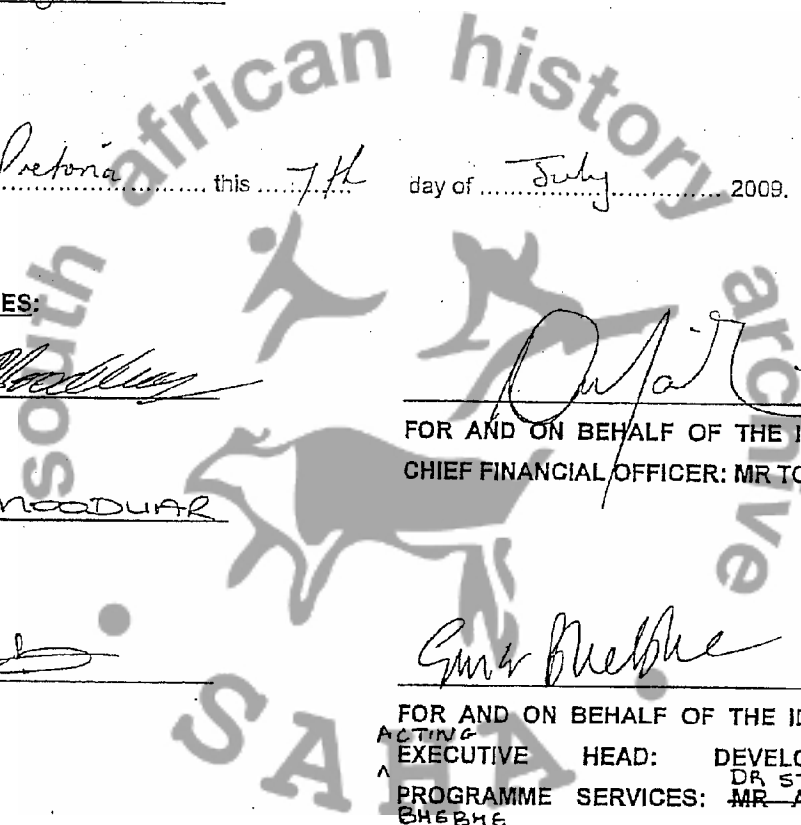 south african history archive
Pretoria this 7th day of July 2009.
ES:
FOR AND ON BEHALF OF THE
CHIEF FINANCIAL OFFICER: MR
MOODLIAR
FOR AND ON BEHALF OF THE
ACTING
^ EXECUTIVE HEAD:
DR
PROGRAMME SERVICES: MR A
BHEBHE
SAHA